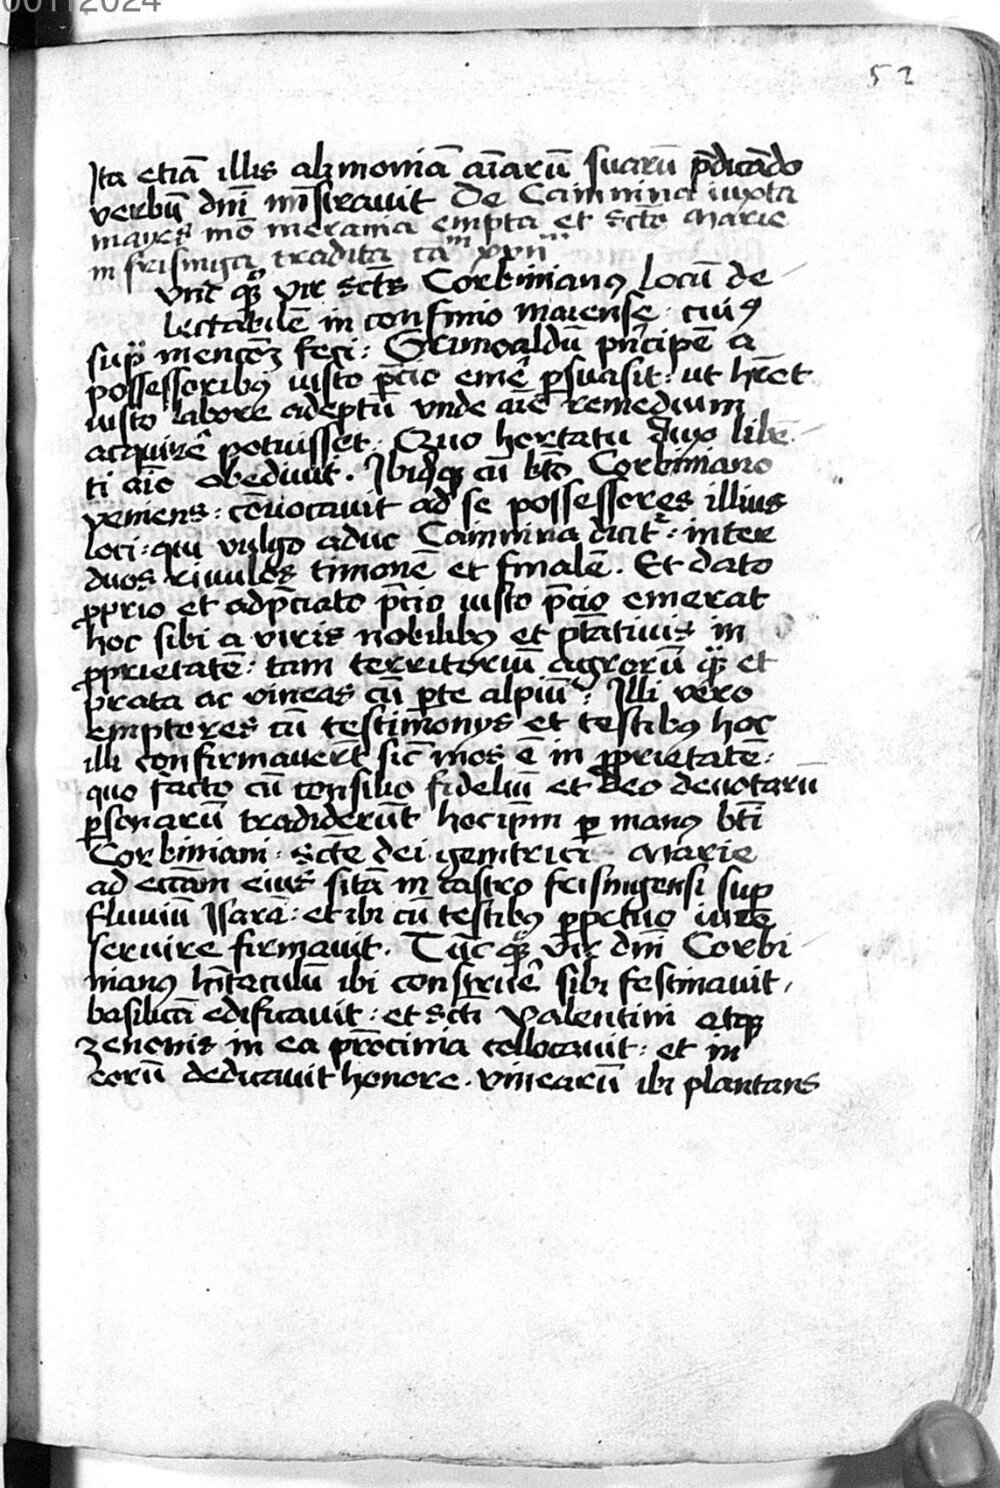 52
Ita etiā illis alimoniā aīarū suarū p̄dicādo
verbū dn̄i mīstrauit De Caminina iuxta
mayes mō merania empta et sctē Marie
in frisinga tradita caᵐ xxviiᵐ
Vnc quoqꝫ vir sct̄s Corbinianꝰ locū de
lectabilē in confinio maiense · cuiꝰ
sup̄ mencōꝫ feci : Grimoaldū pͥncipē a
possessoribꝰ iusto p̄cio emē ꝑsuasit : ut hr̄et
iusto labore adeptū vnde aīe remedium
acquirē potuisset · Quo hortatu dux libē
ti aīo obediuit . Ibidqꝫ cū bt̄o Corbiniano
veniens : cōuocauit ad se possessores illius
loci : qui vulgo aduc Caminina dicit᷑ : inter
duos riuulos timonē et finalē . Et dato
ꝓprio et adp̄ciato p̄cio iusto p̄cio emerat
hoc sibi a viris nobilibꝰ et pt̄atiuis in
ꝓprietatē : tam territoriū agrorū qͣꝫ et
prata ac vineas cū ꝑte alpiū : Illi vero
emptores cū testimonys et testibꝰ hoc
illi confirmauerūt sic̄ mos ē in ꝓprietatē :
quo facto cū consilio fideliū et deo deuotarū
ꝑsonarū tradiderūt hoc ip̄m ꝑ manꝰ bt̄i
Corbiniani : sctē dei genitrici Marie
ad eccām eius sitā in castro frisingensi suꝑ
fluuiū Isarā : et ibi cū testibꝰ ꝑpetuo iure
seruire firmauit . Tūc quoqꝫ vir dn̄i Corbi
nianꝰ hītaculū ibi construē sibi festinauit ,
basilicā edificauit : et sct̄i Valentini atqꝫ
zenonis in ea pr̄ocinia collocauit : et in
eorū dedicauit honore . vinearū ibi plantans